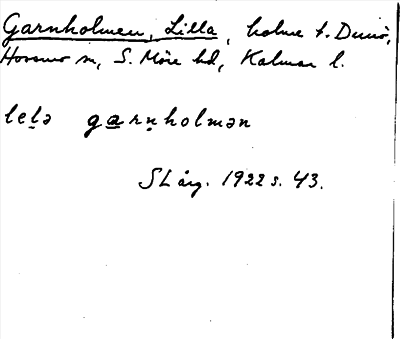 Garnholmen, Lilla, holme t. Dunö,
Hossmo sn, S. Möre hd, Kalmar l.
lelə garnholmən
SL årg. 1922 s. 43.